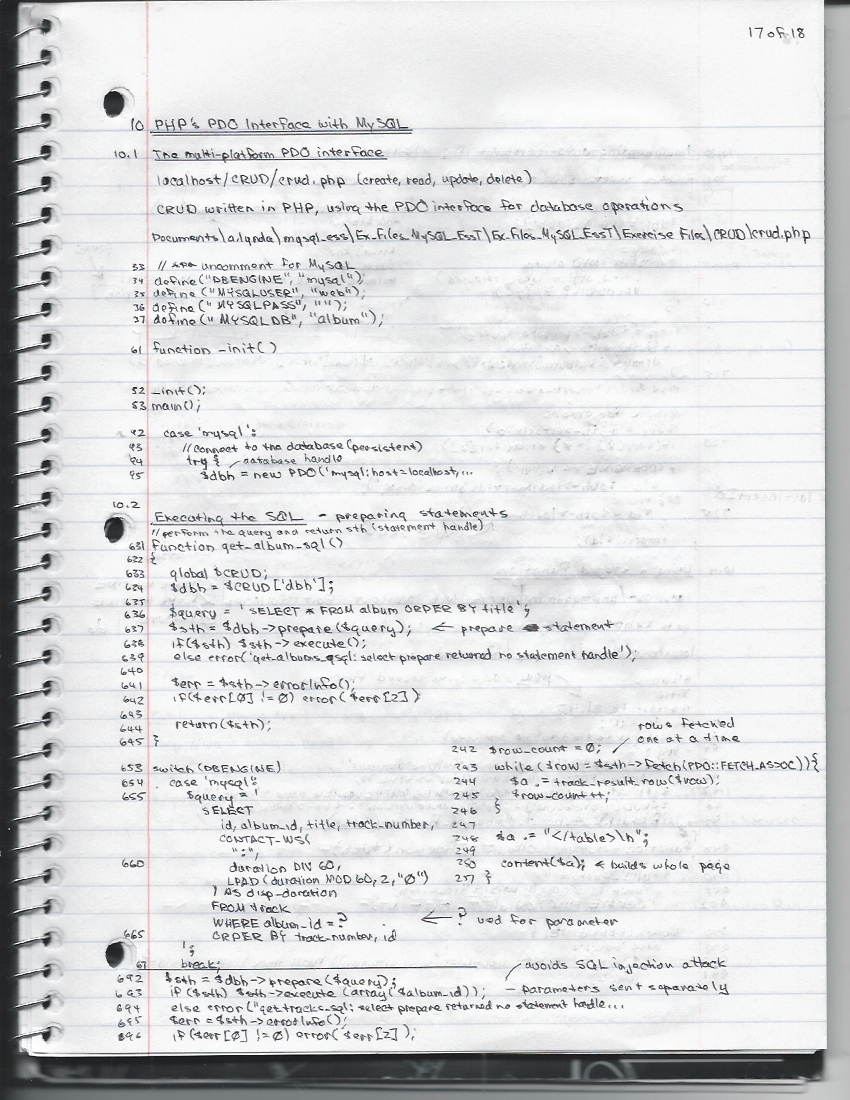 17 of 18
10 PHP's PDO Interface with MySQL
10.1 The multi-platform PDO interface
localhost/CRUD/crud.php (create, read, update, delete)
CRUD written in PHP, using the PDO interface for database operations
Documents\a.lynda\mysql_ess\Ex_Files_MySQL_EssT\Ex_Files_MySQL_EssT\Exercise Files\CRUD\crud.php
33 // uncomment for MySQL
34 define("DBENGINE", "mysql");
35 define("MYSQLUSER", "web");
36 define("MYSQLPASS", "");
37 define("MYSQLDB", "album");
61 function _init()
52 _init();
53 main();
92 case 'mysql':
93 // connect to the database (persistent)
94 try { database handle
95 $dbh = new PDO('mysql:host=localhost,...
10.2 Executing the SQL - preparing statements
// perform the query and return sth (statement handle)
631 function get_album_sql()
632 {
633 global $CRUD;
634 $dbh = $CRUD['dbh'];
635
636 $query = 'SELECT * FROM album ORDER BY title';
637 $sth = $dbh->prepare($query); ← prepare statement
638 if($sth) $sth->execute();
639 else error('get_albums_sql: select prepare returned no statement handle');
640
641 $err = $sth->errorInfo();
642 if($err[0] != 0) error($err[2])
643
644 return($sth);
645 }
653 switch(DBENGINE)
654 case 'mysql':
655 $query = '
SELECT
id, album_id, title, track_number,
CONTACT_WS(
":",
660 duration DIV 60,
LPAD(duration MOD 60, 2, "0")
) AS disp_duration
FROM track
WHERE album_id = ? ← ? used for parameter
665 ORDER BY track_number, id
';
67 break;
rows fetched
one at a time
242 $row_count = 0;
243 while($row = $sth->fetch(PDO::FETCH_ASSOC)){
244 $a .= track_result_row($row);
245 $row_count++;
246 }
247
248 $a .= "</table>\n";
249
250 content($a); ← builds whole page
251 }
avoids SQL injection attack
- parameters sent separately
692 $sth = $dbh->prepare($query);
693 if ($sth) $sth->execute(array($album_id));
694 else error("get_tracks_sql: select prepare returned no statement handle...
695 $err = $sth->errorInfo();
696 if($err[0] != 0) error($err[2]);